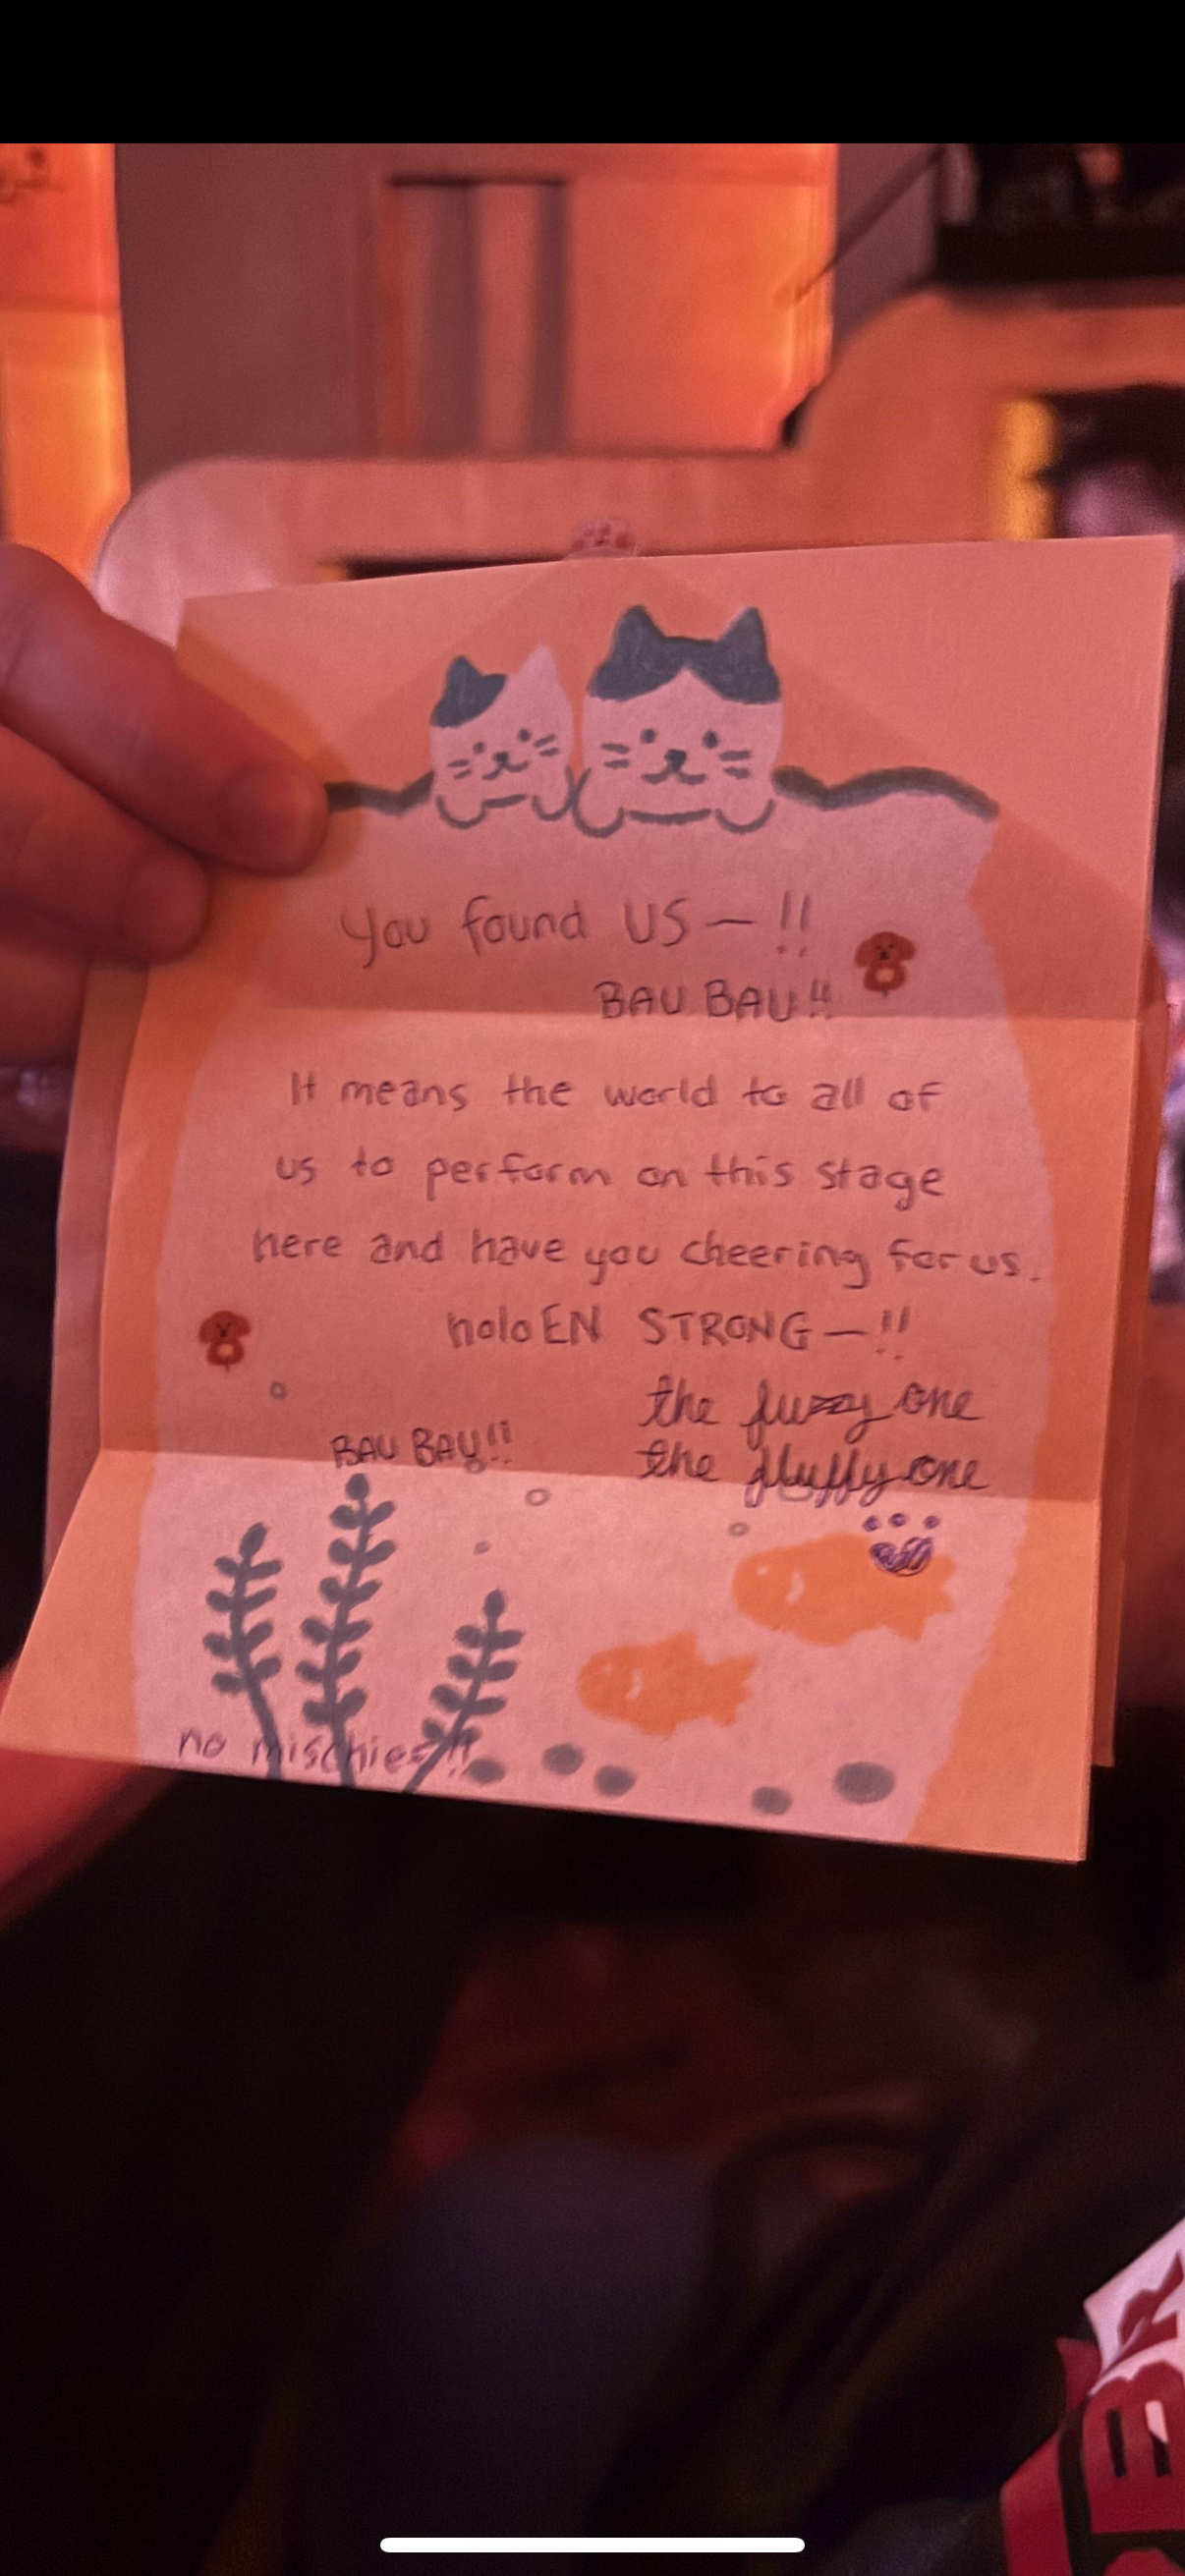 You found US—!!
BAU BAU!!
It means the world to all of
us to perform on this stage
here and have you cheering for us.
holoEN STRONG—!!
the fuzzy one
BAU BAU!!
the fluffy one
no mischief!!